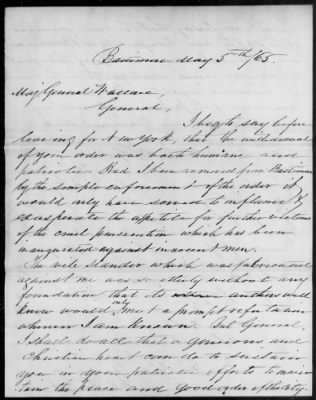 Baltimore May 5th/65.
Maj General Wallace,
General,
I beg to say before
leaving for New York, that the withdrawal
of your order was both humane and
patriotic. Had I been removed from Baltimore
by the simple enforcement of the order it
would only have served to inflame &
exasperate the appetite for further victims
of the cruel persecution which has been
inaugurated against innocent men.
The vile slander which was fabricated
against me was so utterly without any
foundation that its author well
know would only meet a prompt refutation
where I am known. But General,
I shall do all that a generous and
Christian heart can do to sustain
you in your patriotic efforts to main-
tain the peace and good order of the City